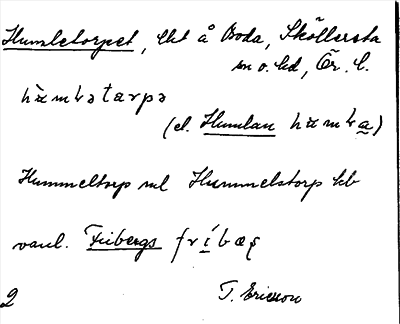 Humletorpet, lht å Boda, Sköllersta
sn o. hd, Ör. l.
hu̇mɬətarpə
(el. Humlan hu̇mɬa)
Hummeltorp ml Hummelstorp kb
vanl. Fribergs fríbæʂ
2 T. Ericsson